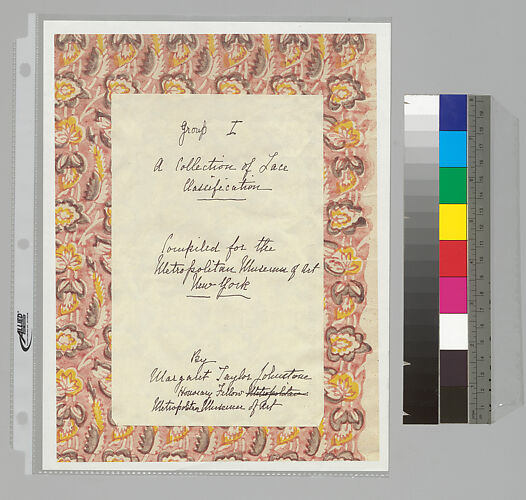 Group I
A Collection of Lace
Classification
Compiled for the
Metropolitan Museum of Art
New York
By
Margaret Taylor Johnstone
Honorary Fellow Metropolitan
Metropolitan Museum of Art
ALLIED